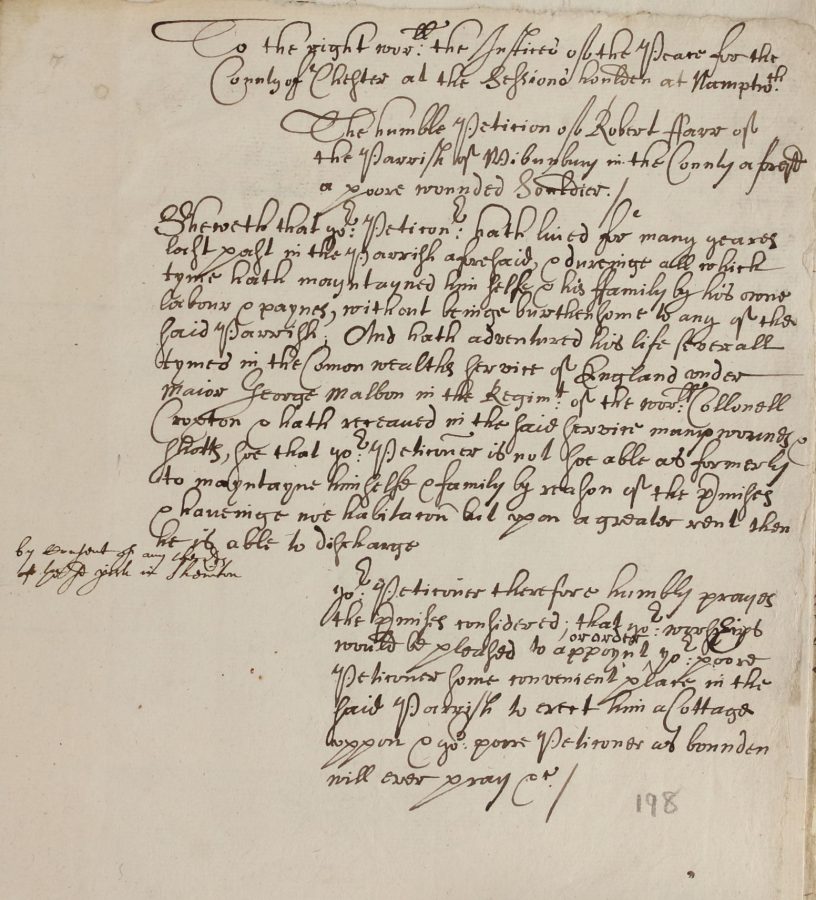 To the right wor:ll the Justices of the Peace for the
County of Chester at the Sessions houlden at Namptwch
The humble Peticion of Robert ffarr of
the Parrish of Wibunbury in the County aforesd
a poore wounded Souldier./
Sheweth that yor: Peticonr: hath lived for many yeares
last past in the Parrish aforesaid, & dureinge all which
tyme hath mayntayned him selfe & his ffamily by his owne
labour & paynes, without beinge burthensome to any of the
said Parrish; And hath adventured his life severall
tymes in the Comon wealths service of England under
Maior George Malbon in the Regimt: of the worll: Collonell
Croxton & hath receaued in the said service many wounds &
shotts, soe that yor: Peticoner is not soe able as formerly
to mayntayne himselfe & family by reason of the pmises
& haveinge noe habitacon but upon a greater rent then
he is able to discharge
by Consent of any
of in
yor: Peticoner therefore humbly prayes
the pmises considered; that yor: worships
would be pleased to appoynt or order yor: poore
Peticoner some convenient place in the
said Parrish to erect him a Cottage
uppon & yor: poore Peticoner as bounden
will ever pray &c./
198